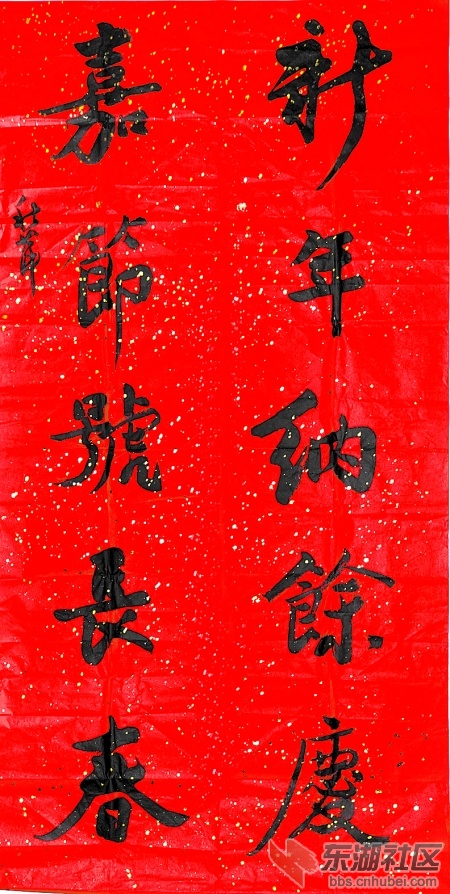 新年納餘慶
嘉節號長春
东湖社区
bbs.cnhubei.com